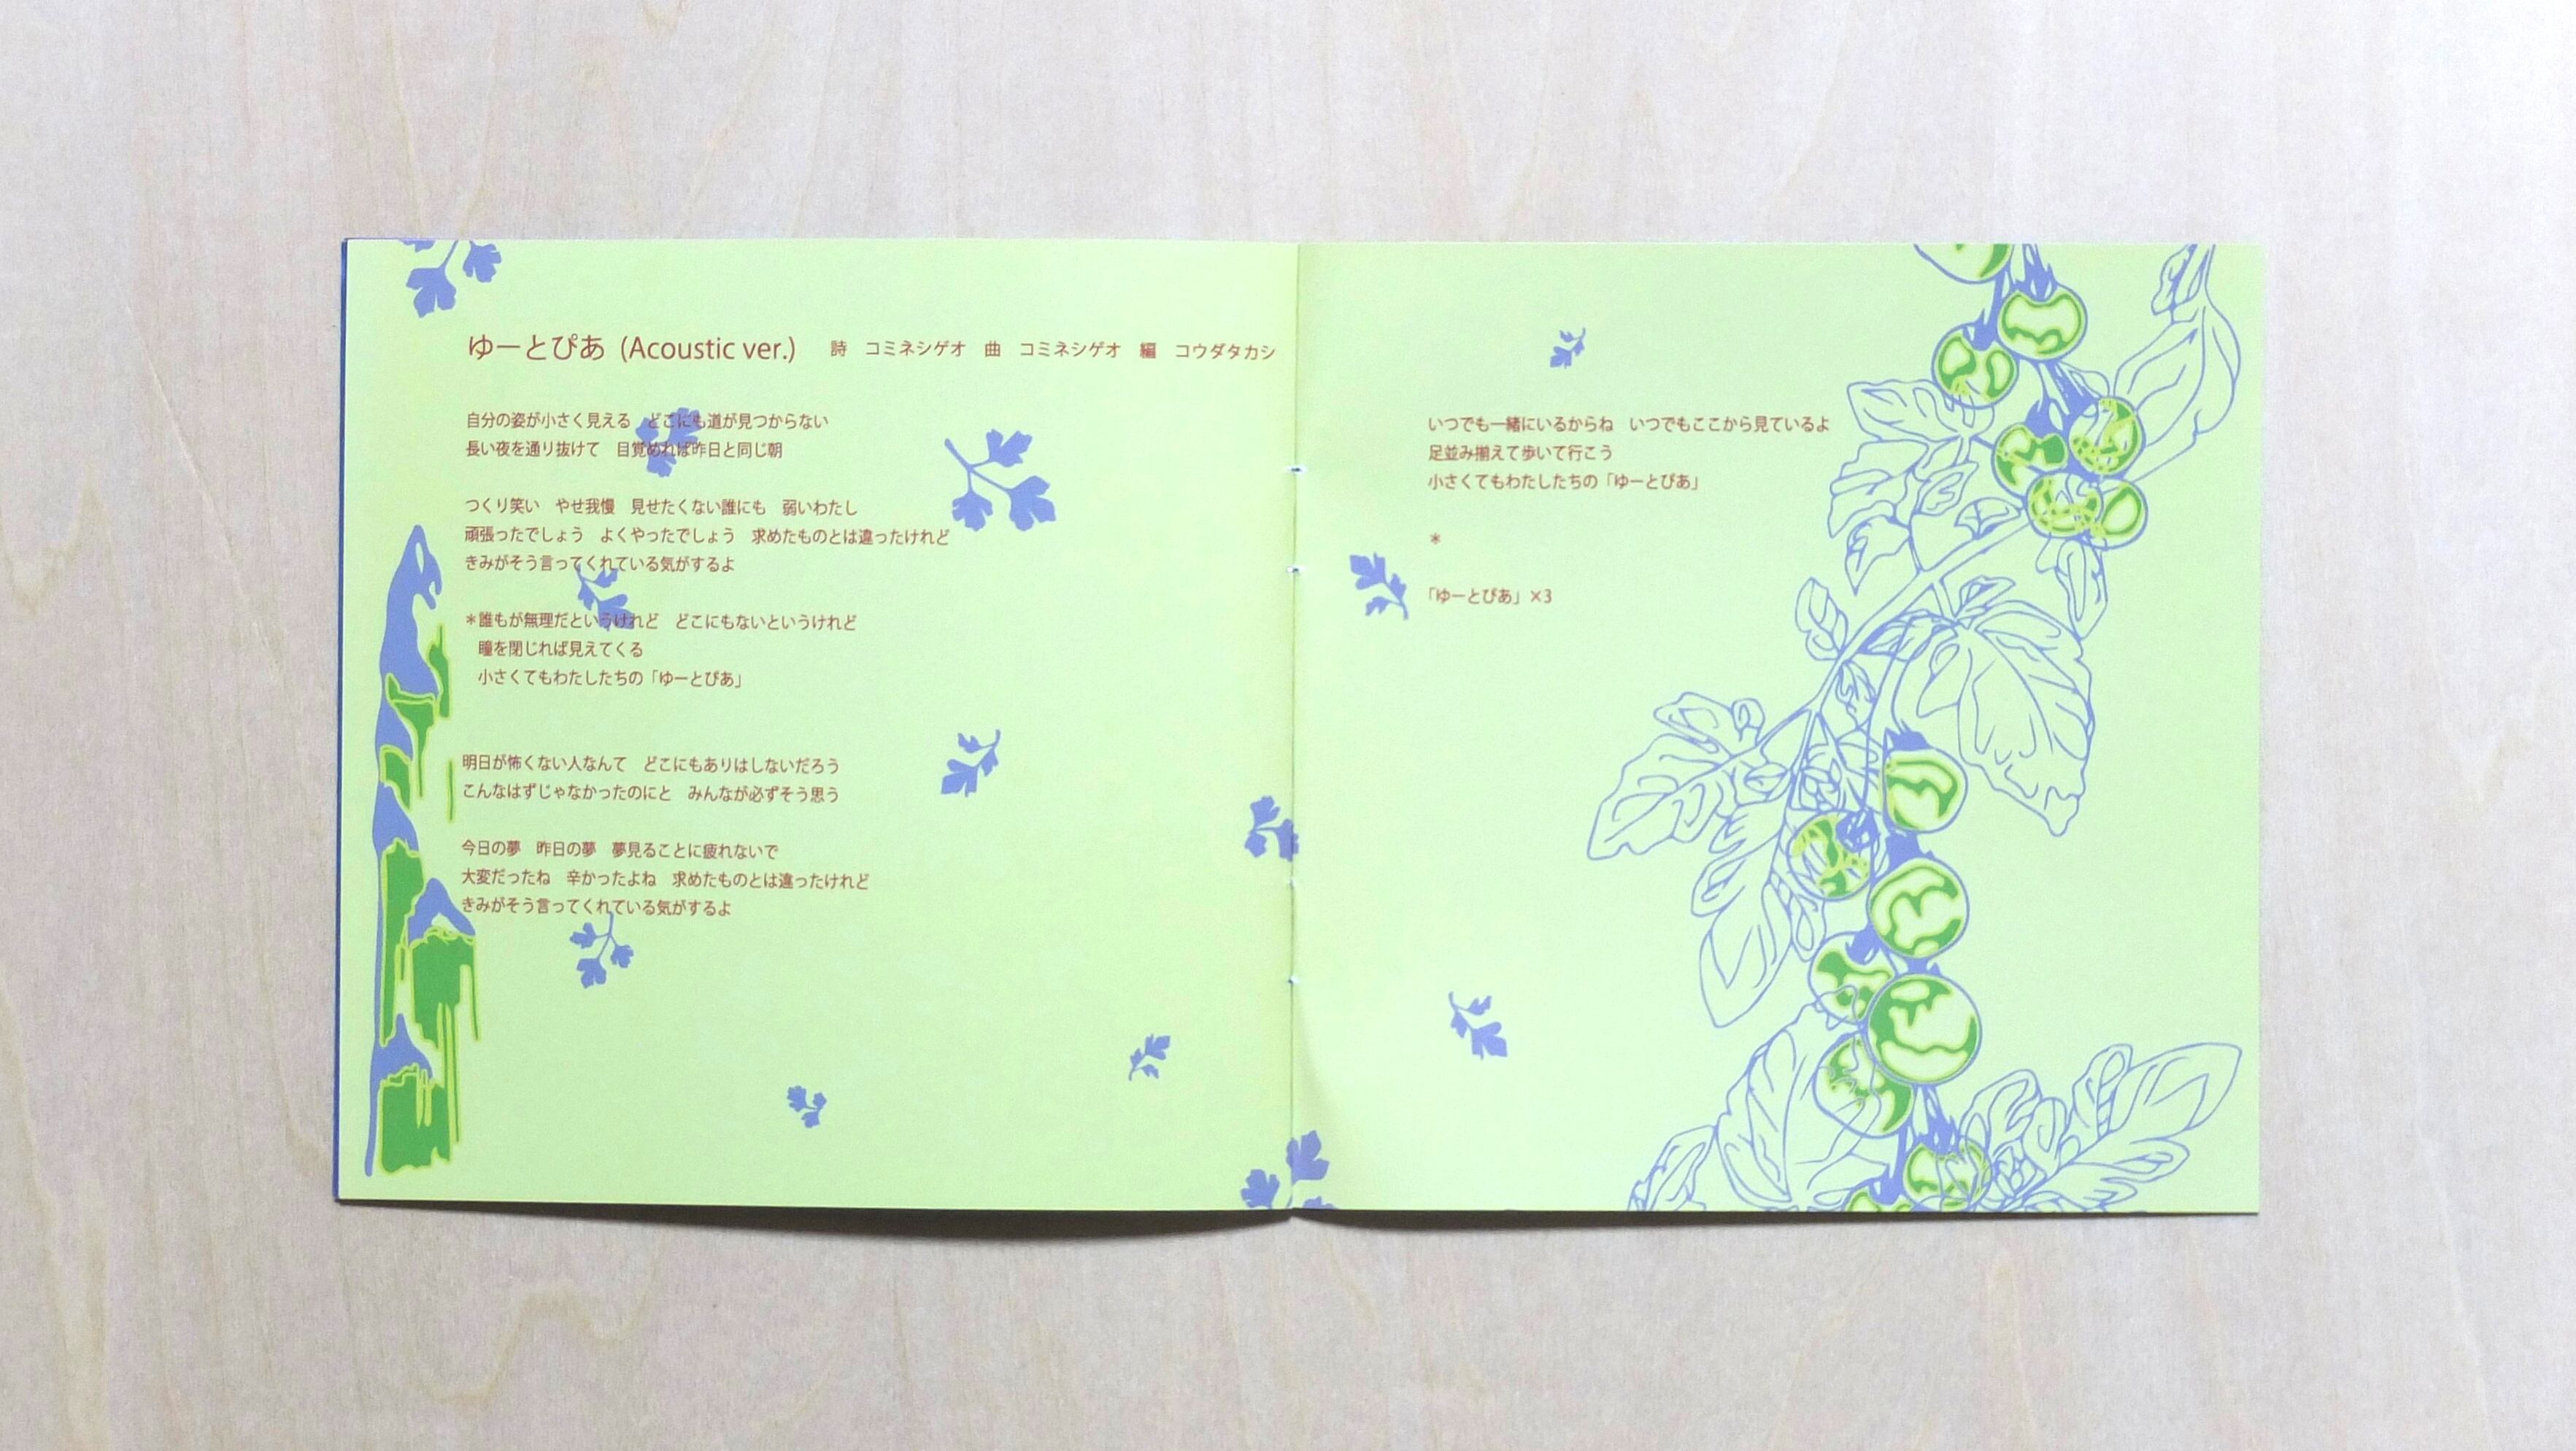 ゆーとぴあ (Acoustic ver.)　詩　コミネシゲオ　曲　コミネシゲオ　編　コウダタカシ
自分の姿が小さく見える　どこにも道が見つからない
長い夜を通り抜けて　目覚めれば昨日と同じ朝
つくり笑い　やせ我慢　見せたくない誰にも　弱いわたし
頑張ったでしょう　よくやったでしょう　求めたものとは違ったけれど
きみがそう言ってくれている気がするよ
＊誰もが無理だというけれど　どこにもないというけれど
瞳を閉じれば見えてくる
小さくてもわたしたちの「ゆーとぴあ」
明日が怖くない人なんて　どこにもありはしないだろう
こんなはずじゃなかったのにと　みんなが必ずそう思う
今日の夢　昨日の夢　夢見ることに疲れないで
大変だったね　辛かったよね　求めたものとは違ったけれど
きみがそう言ってくれている気がするよ
いつでも一緒にいるからね　いつでもここから見ているよ
足並み揃えて歩いて行こう
小さくてもわたしたちの「ゆーとぴあ」
＊
「ゆーとぴあ」×3